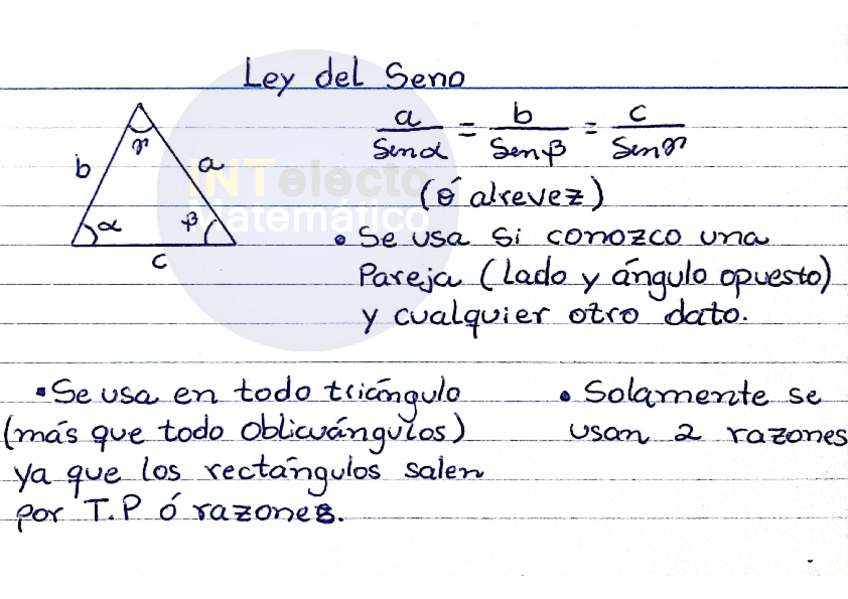 Ley del Seno
a/Senα = b/Senβ = c/Senγ
(ó alrevez)
b γ a
α β
c
INTelecto
Matemático
• Se usa si conozco una
Pareja (Lado y ángulo opuesto)
y cualquier otro dato.
• Se usa en todo triángulo
(más que todo Oblicuángulos)
ya que los rectángulos salen
por T.P ó razones.
• Solamente se
usan 2 razones